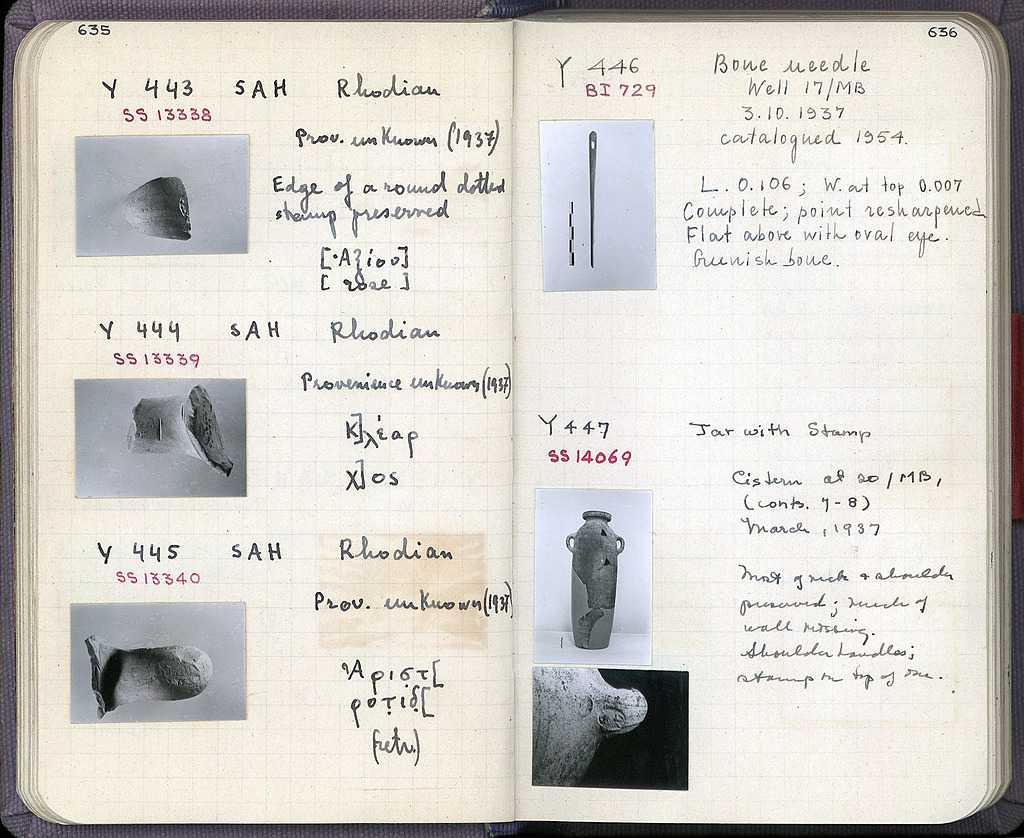 635
Y 443 SAH Rhodian
SS 13338
Prov. unknown (1937)
Edge of a round dotted
stamp preserved
[Ἀξίου]
[rose]
Y 444 SAH Rhodian
SS 13339
Provenience unknown (1937)
Κ]λέαρ
χ]ος
Y 445 SAH Rhodian
SS 13340
Prov. unknown (1937)
Ἀριστ[
ροτίδ[
(retr.)
636
Y 446 Bone needle
BI 729
Well 17/MB
3.10.1937
catalogued 1954.
L. 0.106; W. at top 0.007
Complete; point resharpened
Flat above with oval eye.
Greenish bone.
Y 447 Jar with Stamp
SS 14069
Cistern at 20/MB,
(conts. 7-8)
March, 1937
Most of neck & shoulder
preserved; much of
wall missing.
Shoulder handles;
stamp on top of one.